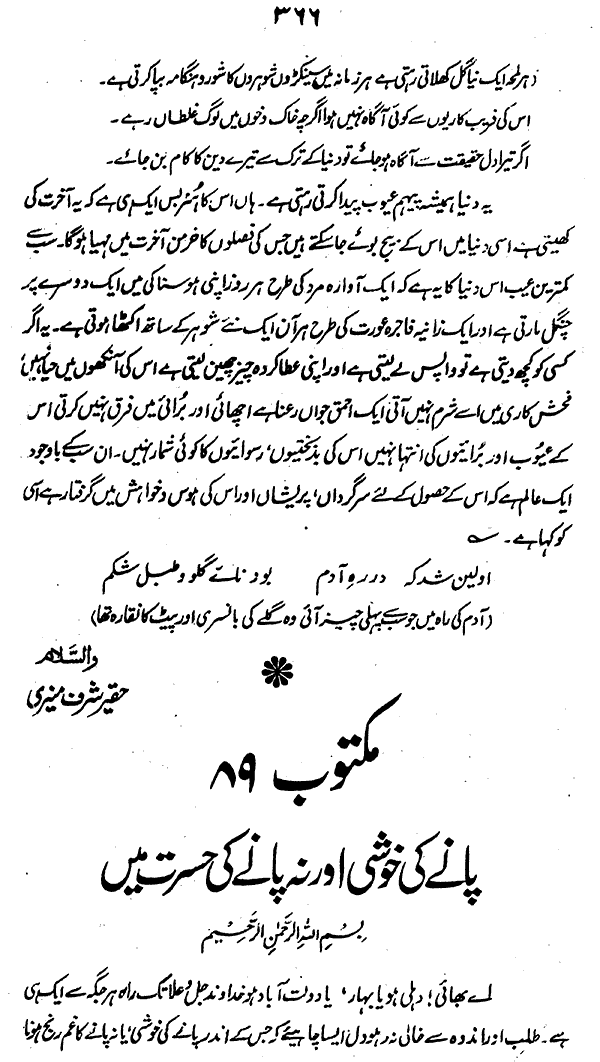 ۳۶۶
(ہر لمحہ ایک نیا گل کھلاتی رہتی ہے ہر زمانہ میں سینکڑوں شوہروں کا شور و ہنگامہ بپا کرتی ہے۔
اس کی فریب کاریوں سے کوئی آگاہ نہیں ہوا اگرچہ خاک و خوں میں لوگ غلطاں رہے۔
اگر تیرا دل حقیقت سے آگاہ ہو جائے تو دنیا کے ترک سے تیرے دین کا کام بن جائے۔
یہ دنیا ہمیشہ پیہم عیوب پیدا کرتی رہتی ہے۔ ہاں اس کا ہنر بس ایک ہی ہے کہ یہ آخرت کی
کھیتی ہے اسی دنیا میں اس کے بیج بوئے جا سکتے ہیں جس کی فصلوں کا خرمن آخرت میں مہیا ہوگا۔ سب سے
کمترین عیب اس دنیا کا یہ ہے کہ ایک آوارہ مرد کی طرح ہر روز اپنی ہوسناکی میں ایک دوسرے پر
چنگل مارتی ہے اور ایک زانیہ فاجرہ عورت کی طرح ہر آن ایک نئے شوہر کے ساتھ اکٹھا ہوتی ہے۔ یہ اگر
کسی کو کچھ دیتی ہے تو واپس لے لیتی ہے اور اپنی عطا کردہ چیز چھین لیتی ہے اس کی آنکھوں میں حیا نہیں،
فحش کاری میں اسے شرم نہیں آتی ایک احمق جواں رعنا ہے اچھائی اور برائی میں فرق نہیں کرتی اس
کے عیوب اور برائیوں کی انتہا نہیں اس کی بدبختیوں، رسوائیوں کا کوئی شمار نہیں۔ ان سب کے باوجود
ایک عالم ہے کہ اس کے حصول کے لئے سرگرداں، پریشاں اور اس کی ہوس و خواہش میں گرفتار ہے اسی
کو کہا ہے۔ ؎
اولین شد کہ در رہ آدم بود نائے گلو و طبل شکم
(آدم کی راہ میں جو سب سے پہلی چیز آئی وہ گلے کی بانسری اور پیٹ کا نقارہ تھا)
والسَّلام
حقیر شرف منیری
مکتوب ۸۹
پانے کی خوشی اور نہ پانے کی حسرت میں
بِسْمِ اللّٰہِ الرَّحْمٰنِ الرَّحِیْمِ
اے بھائی! دہلی ہو یا بہار، یا دولت آباد ہو خداوند جل و علا تک راہ ہر جگہ سے ایک ہی
ہے۔ طلب اور اندوہ سے خالی نہ رہو دل ایسا چاہیئے کہ جس کے اندر پانے کی خوشی، یا نہ پانے کا غم رنج ہونا